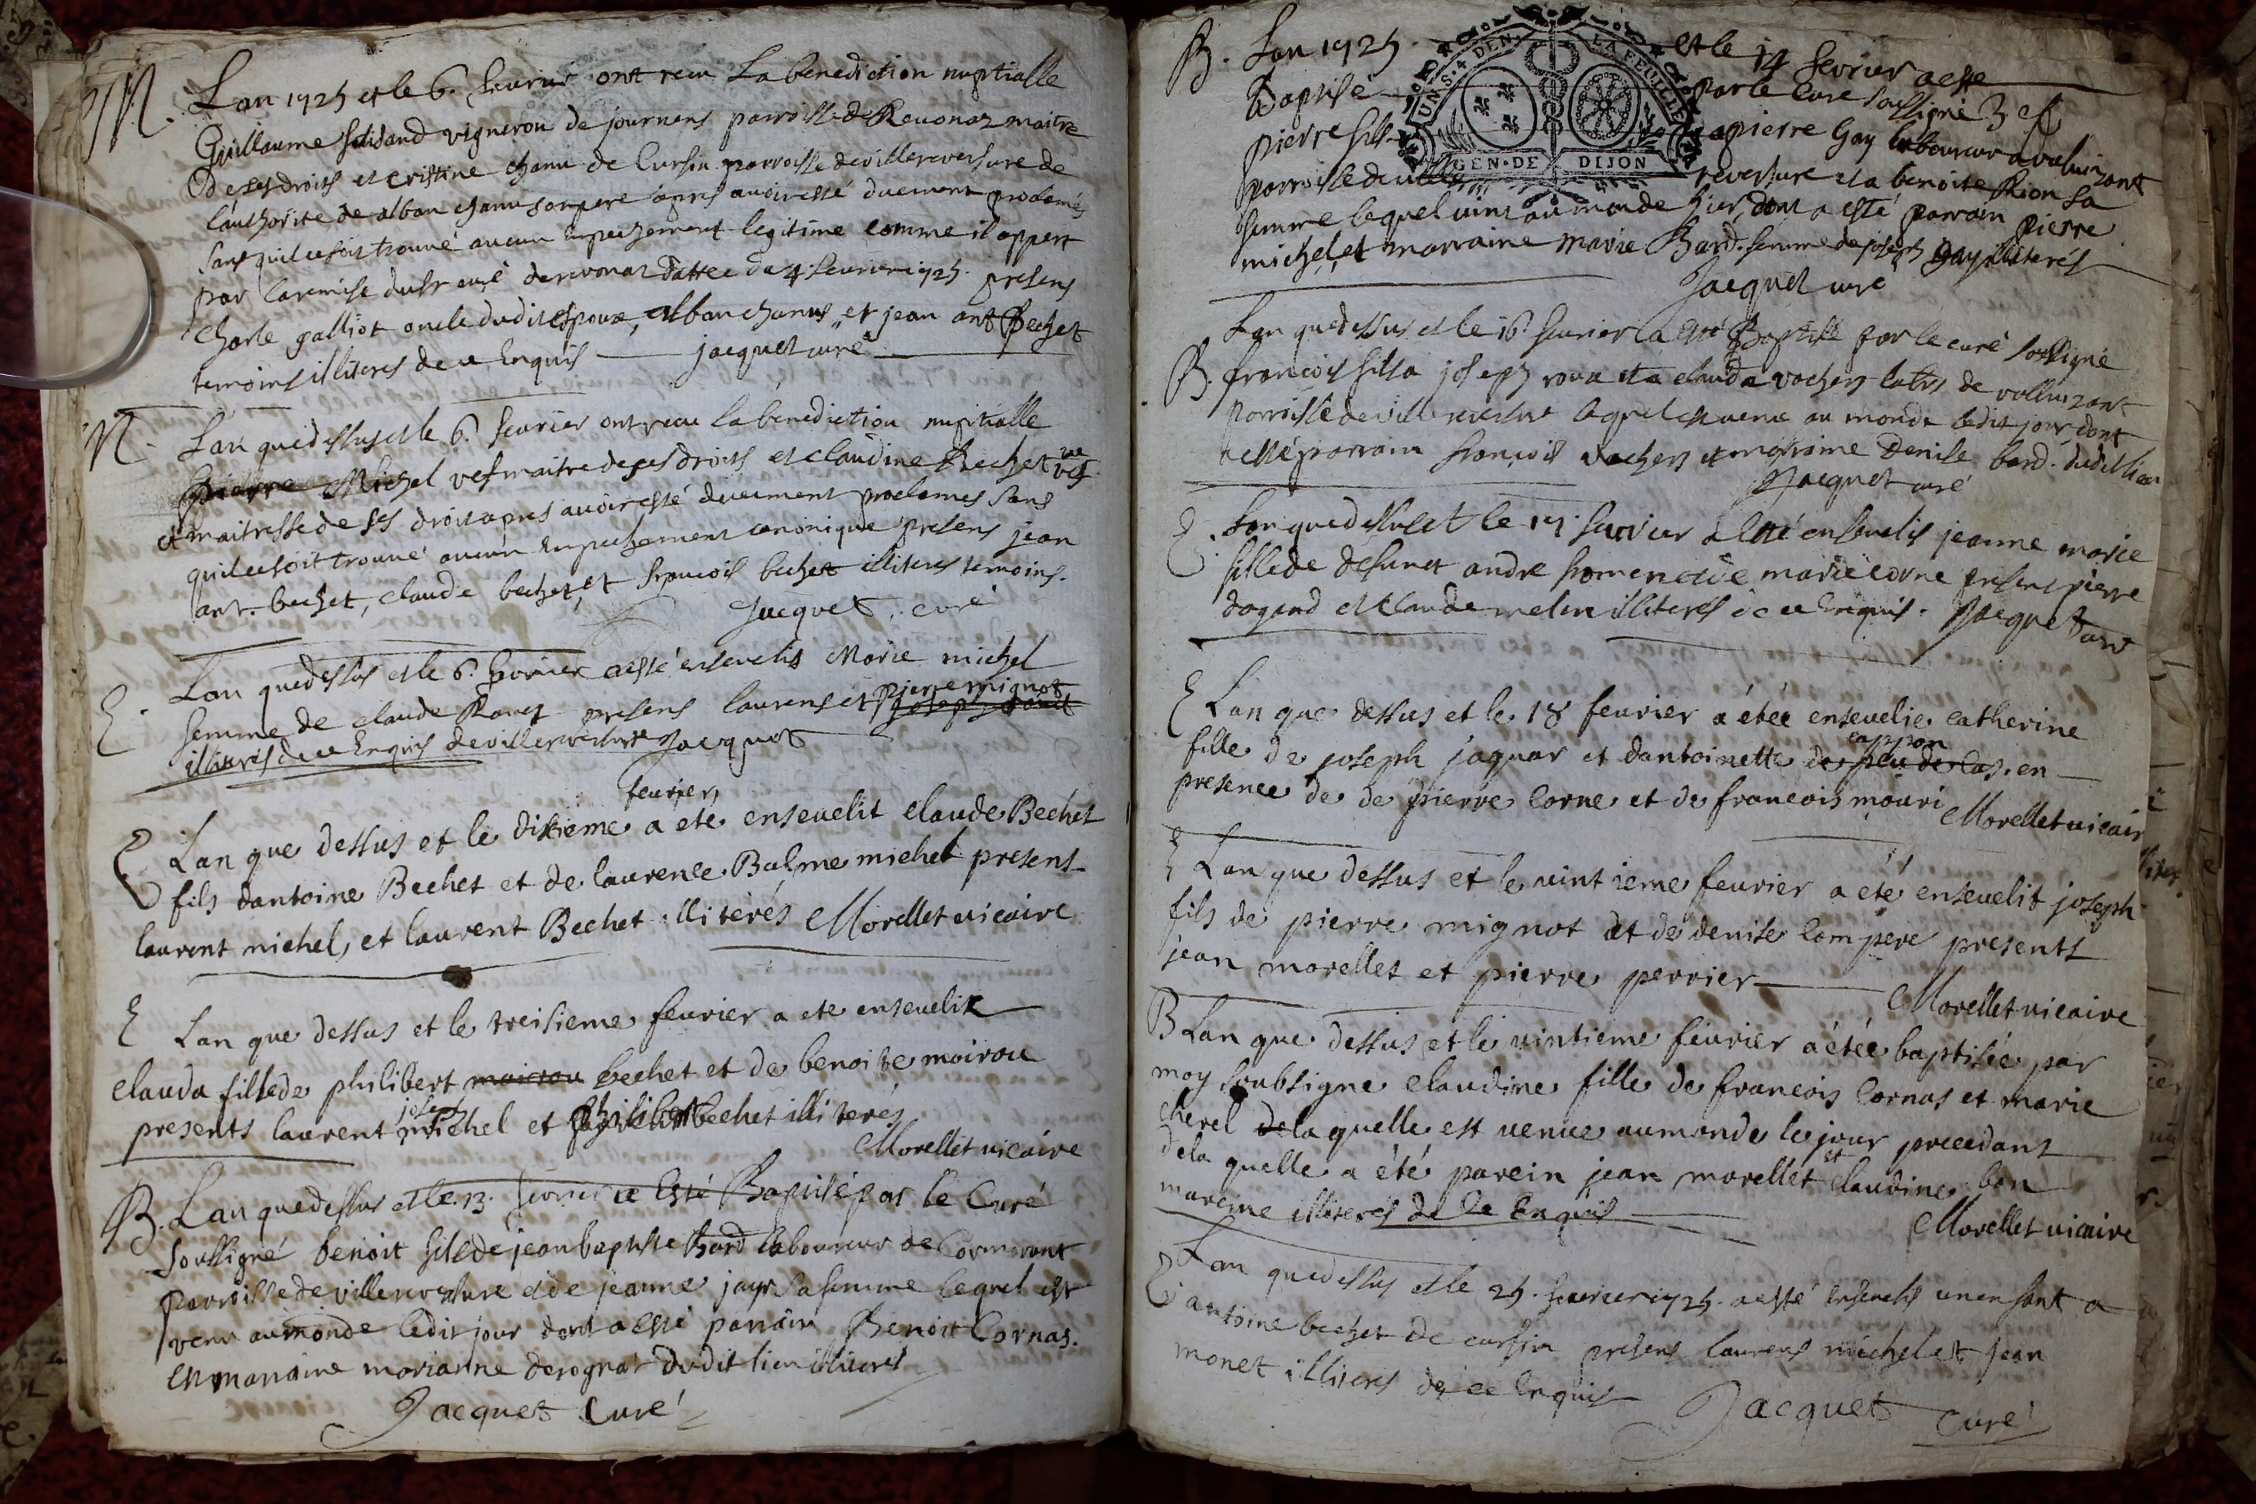 M. Lan 1725 et le 6. feurier ont recu La benediction nuptialle
Guillaume vigneron de journens parroisse de Reuonaz maitre
De ses droits et cristine chanu de Cursin parroisse de villereversure de
l'authorite de alban chanu son pere apres auoir esté duement proclamés
sans quil ce soit trouué aucun empechement legitime comme il appert
par la remise du sr curé de reuonas dattee du 4. feurier 1725. presens
charle galliot oncle dudit espoux, alban chanu, et jean ant Bechet
temoins illiteres de ce Enquis jacquet curé
M. Lan que dessus et le 6. feurier ont recu la benediction nuptialle
Pierre Michel vef maitre de ses droits et claudine Bechet ve vef
et maitresse de ses droits apres auoir esté duement proclames sans
quil ce soit trouué aucun empechement canonique presens jean
ant. bechet, claude bechet, et francois bechet illiteres temoins.
Jacquet curé
E. Lan que dessus et le 6. feurier a esté enseuelis Marie michel
femme de claude presens laurens et pierre mignot
illiteres de ce Enquis de villereversure Jacquet
feurier
E Lan que dessus et le dixieme a eté enseuelit claude Bechet
fils dantoine Bechet et de laurence Balme michel presens
laurent michel, et laurent Bechet illiterés Morellet uicaire
E Lan que dessus et le treisieme feurier a ete enseuelit
clauda fille de philibert moirou bechet et de benoite moirou
presents laurent joseph michel et philibert bechet illiterés
Morellet uicaire
B. Lan que dessus et le 13. feurier a Esté Baptisé par le Curé
soussigné benoit fils de jean baptiste bard laboureur de Cormorant
parroisse de villereversure et de jeanne jayr sa femme lequel est
venu au monde ledit jour dont a esté parrain Benoit Cornas.
Et marraine marianne derognat dudit lieu illiteres
Jacquet Curé
B. Lan 1725 et le 14 feurier a esté
Baptisé par le Curé soussigné
pierre fils a pierre Gay laboureur a valuinzant
parroisse de villereversure et a benoite Rion sa
femme lequel vint au monde hier, dont a esté parrain pierre
michel, et marraine marie Bard. femme de joseph gay illiterés
Jacquet curé
Lan que dessus et le 16. feurier a esté Baptisé par le curé soussigné
B. francois fils a joseph et a clauda vochers de
parroisse de villereversure lequel est venu au monde ledit jour dont
a esté parrain francois vochers et marraine Denise bard. dudit lieu
Jacquet curé
E. Lan que dessus et le 17. feurier a Esté enseuelis jeanne marie
fille de defunct andre et de marie corne presens pierre
dagand et Claude melin illiterés de ce Enquis. Jacquet curé
E Lan que dessus et le 18 feurier a étée enseuelie catherine
fille de joseph jaquar et dantoinette cappon en
presence de de pierre Corne et de francois mouri Morellet uicair
E Lan que dessus et le uintieme feurier a eté enseuelit joseph
fils de pierre mignot et de denise Compere presents
jean morellet et pierre perrier
Morellet uicaire
B Lan que dessus et le uintieme feurier a étée baptisée par
moy soubsigne claudine fille de francois Cornas et marie
cherel de la quelle est uenue au monde le jour precedant
de la quelle a été parein jean morellet et claudine bon
mareine illiteres de Ce Enquis
Morellet uicaire
Lan que dessus et le 25. feurier 1725. a esté Enseuelis un enfant a
E antoine bechet de cursin presens laurens michel et Jean
monet illiteres de ce Enquis Jacquet Curé
UN S. 4 DEN. LA FEUILLE
GEN. DE DIJON